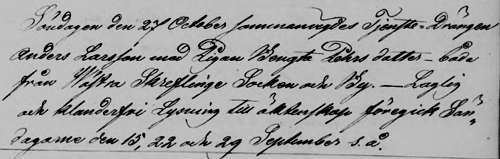 Söndagen den 27 October sammanvigdes Tjenste-Drängen
Anders Larsson med Pigan Bengta Pehrs dotter - båda
från Westra Skreflinge Socken och By. - Laglig
och klanderfri Lysning till äktenskap föregick Sön-
dagarne den 15, 22 och 29 September s.å.